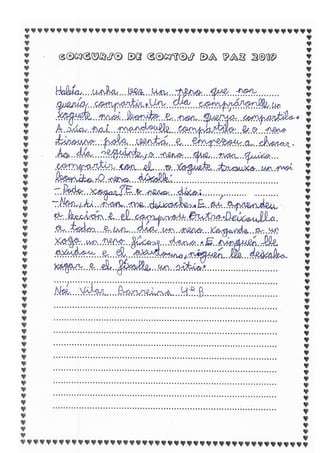 CONCURSO DE CONTOS DA PAZ 2019
Había unha vez un neno que non
quería compartir. Un día compráronlle un
xoguete moi bonito e non quería compartilo.
A súa nai mandoulle compartilo e o neno
tirouno pola ventá e empezou a chorar.
Ao día seguinte, o neno que non quixo
compartir con el o xoguete trouxo un moi
bonito. O neno díxolle:
-Podo xogar? E o neno dixo:
-Non, ti non me deixaches. E aí aprendeu
a lección e el cambiou. Outra Deixoulla
a todos e un día un neno xogando a un
xogo un neno fíxose dano. E ninguén lle
axudou e el axudouno, ninguén lle deixaba
xogar e el fíxolle un sitio.
Noé Vilar Barreira 4ºB